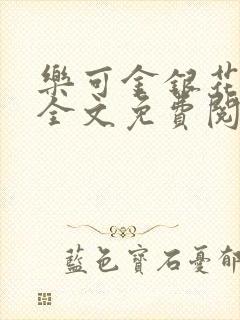 樂可金銀花
全文免費閱
藍色寶石憂郁